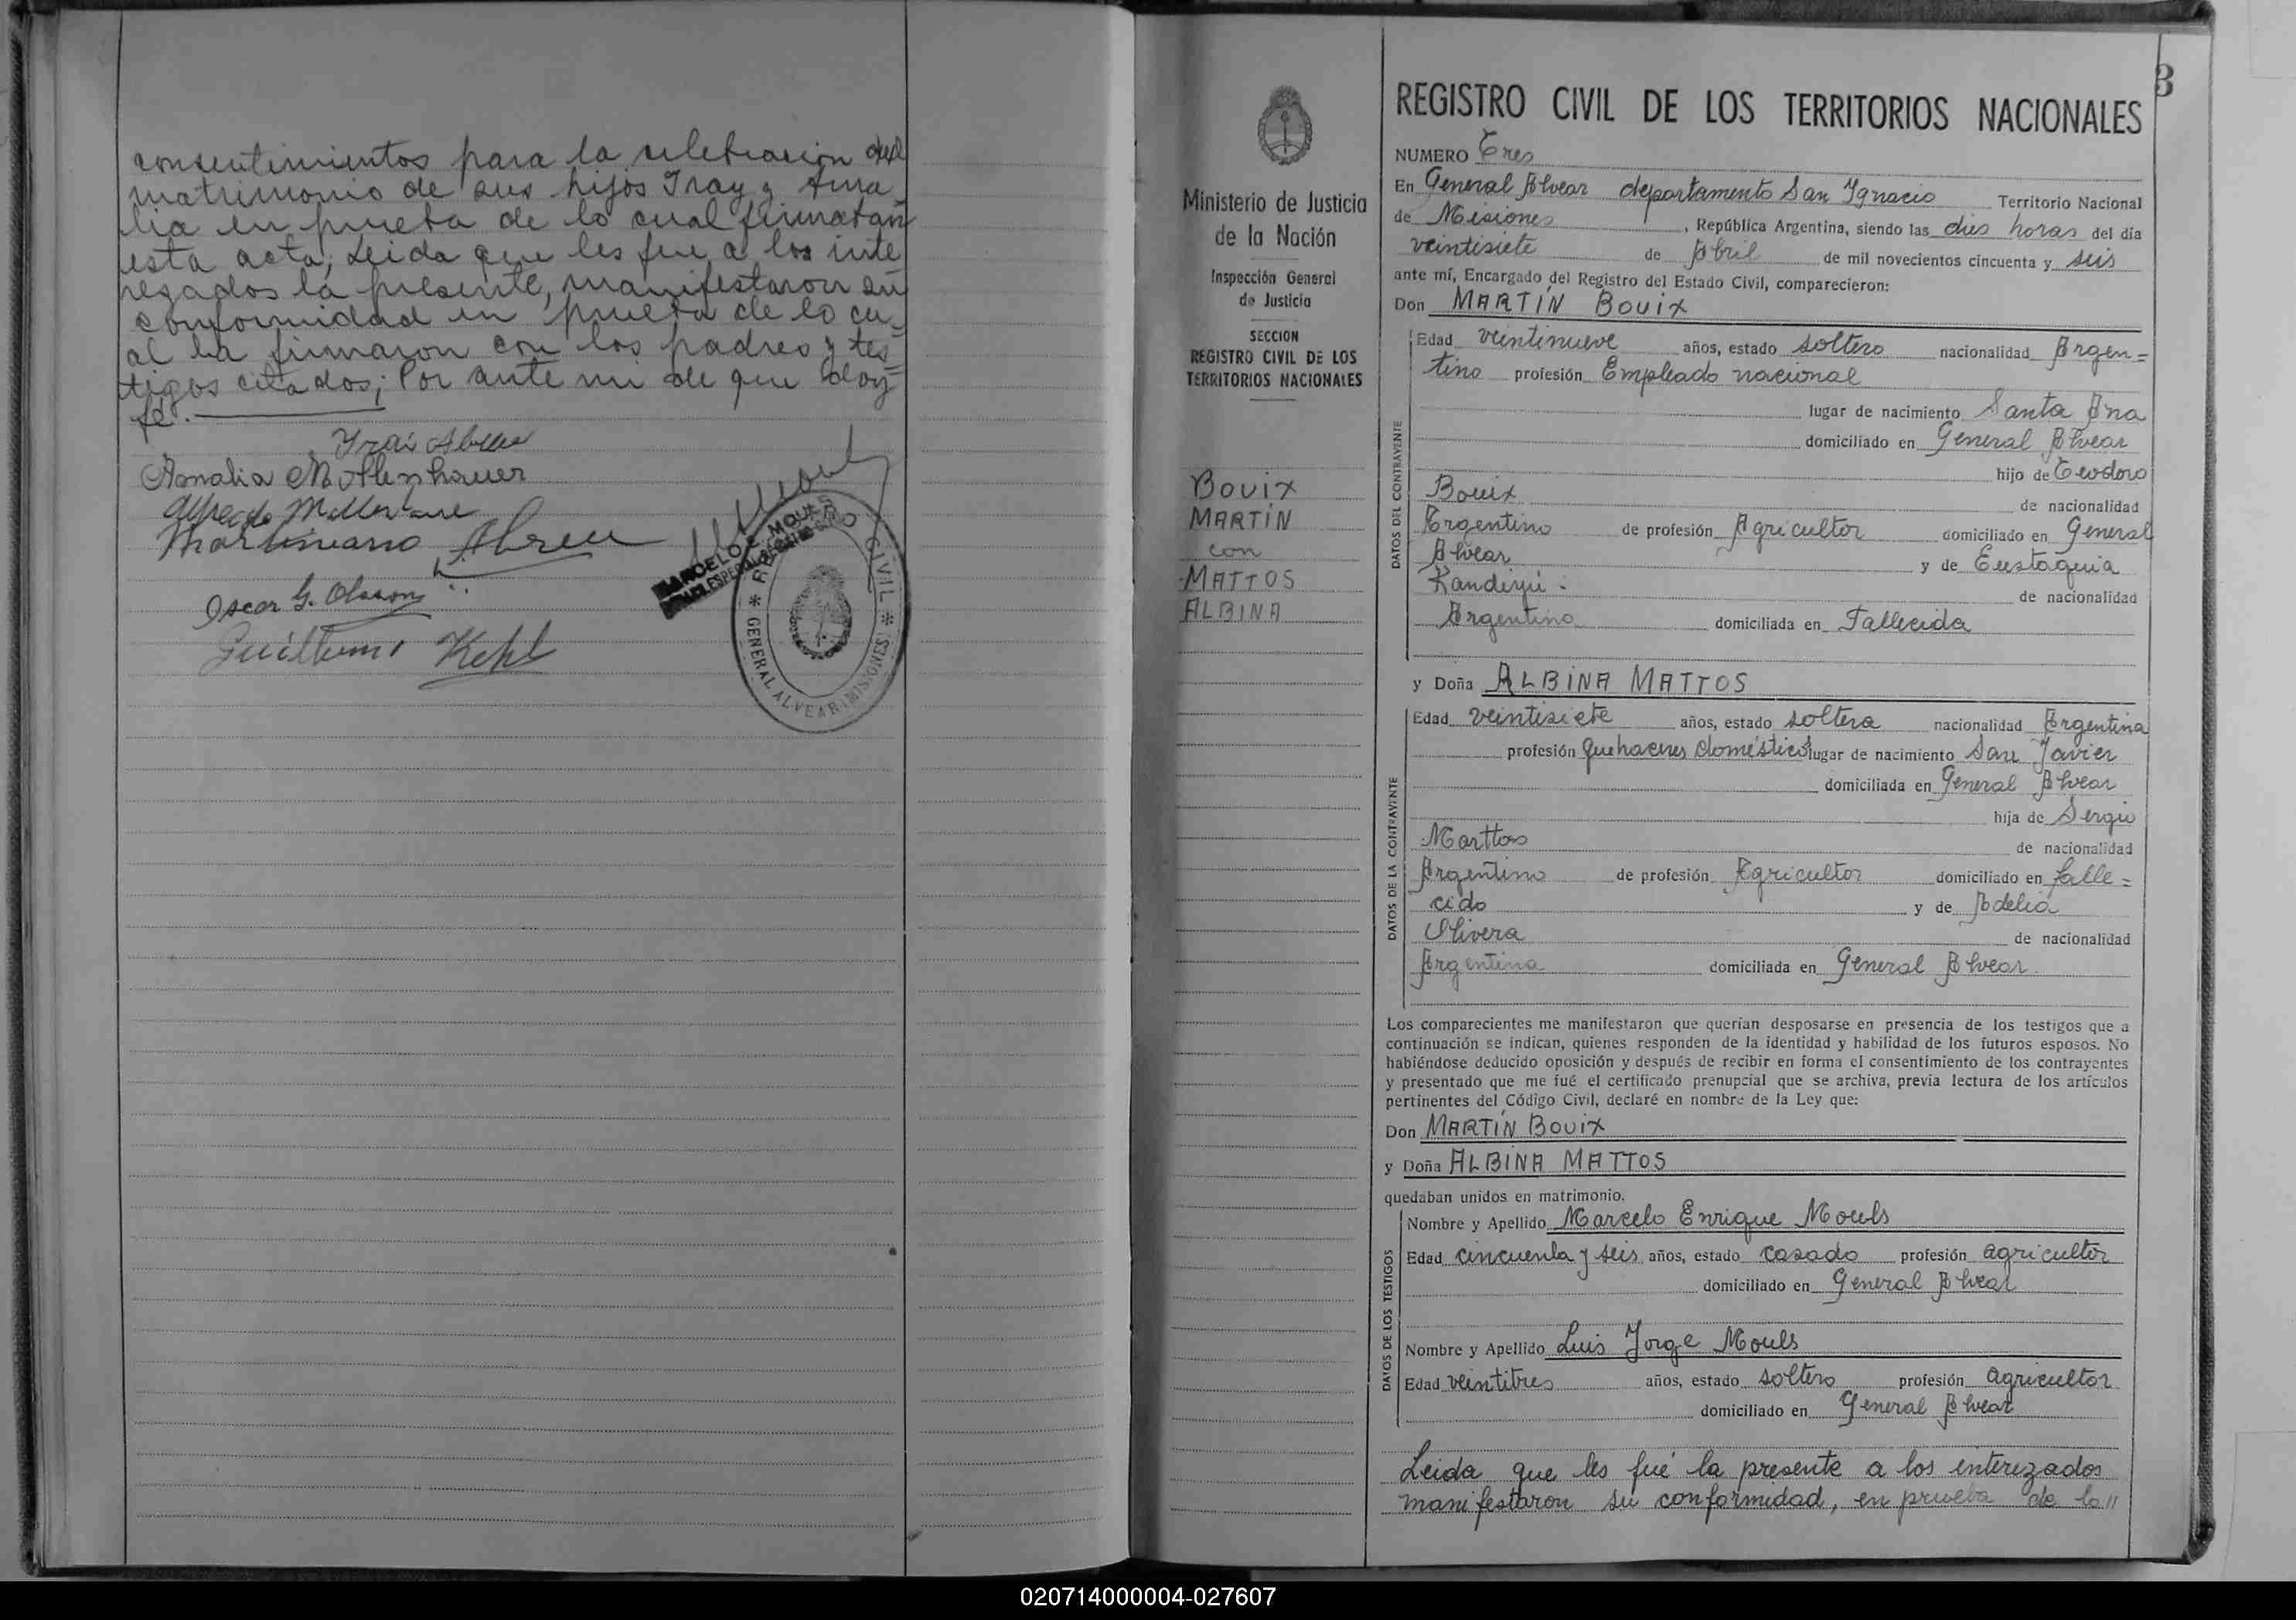 consentimientos para la celebracion del
matrimonio de sus hijos Iray y Ama
lia en prueba de lo cual firmaran
esta acta; Leida que les fue a los inte
resados la presente, manifestaron su
conformidad en prueba de lo cu-
al la firmaron con los padres y tes-
tigos citados; Por ante mi de que doy
fé.
Irai Abreu
Amalia Mottenhauer
Alfredo
Martiniano Abreu
Oscar G. Olsson
Guillermo Kehl
MARCELO E. MOULS
REGISTRO CIVIL
GENERAL ALVEAR (MISIONES)
3
Ministerio de Justicia
de la Nación
Inspección General
de Justicia
SECCION
REGISTRO CIVIL DE LOS
TERRITORIOS NACIONALES
BOUIX
MARTÍN
con
MATTOS
ALBINA
REGISTRO CIVIL DE LOS TERRITORIOS NACIONALES
NUMERO Tres
En General Alvear departamento San Ignacio Territorio Nacional
de Misiones, República Argentina, siendo las dies horas del día
veintisiete de Abril de mil novecientos cincuenta y seis
ante mí, Encargado del Registro del Estado Civil, comparecieron:
Don MARTÍN BOUIX
DATOS DEL CONTRAYENTE
Edad veintinueve años, estado soltero nacionalidad Argen=
tino profesión Empleado nacional
lugar de nacimiento Santa Ana
domiciliado en General Alvear
hijo de Teodoro
Bouix de nacionalidad
Argentino de profesión Agricultor domiciliado en General
Alvear y de Eustaquia
Kandiyú de nacionalidad
Argentina domiciliada en Fallecida
y Doña ALBINA MATTOS
DATOS DE LA CONTRAYENTE
Edad veintisiete años, estado soltera nacionalidad Argentina
profesión quehaceres domésticos lugar de nacimiento San Javier
domiciliada en General Alvear
hija de Sergio
Mattos de nacionalidad
Argentino de profesión Agricultor domiciliado en falle=
cido y de Adelia
Olivera de nacionalidad
Argentina domiciliada en General Alvear
Los comparecientes me manifestaron que querían desposarse en presencia de los testigos que a
continuación se indican, quienes responden de la identidad y habilidad de los futuros esposos. No
habiéndose deducido oposición y después de recibir en forma el consentimiento de los contrayentes
y presentado que me fué el certificado prenupcial que se archiva, previa lectura de los artículos
pertinentes del Código Civil, declaré en nombre de la Ley que:
Don MARTÍN BOUIX
y Doña ALBINA MATTOS
quedaban unidos en matrimonio.
DATOS DE LOS TESTIGOS
Nombre y Apellido Marcelo Enrique Mouls
Edad cincuenta y seis años, estado casado profesión agricultor
domiciliado en General Alvear
Nombre y Apellido Luis Jorge Mouls
Edad veintitres años, estado soltero profesión agricultor
domiciliado en General Alvear
Leida que les fué la presente a los enterezados
manifestaron su conformidad, en prueba de lo//
020714000004-027607